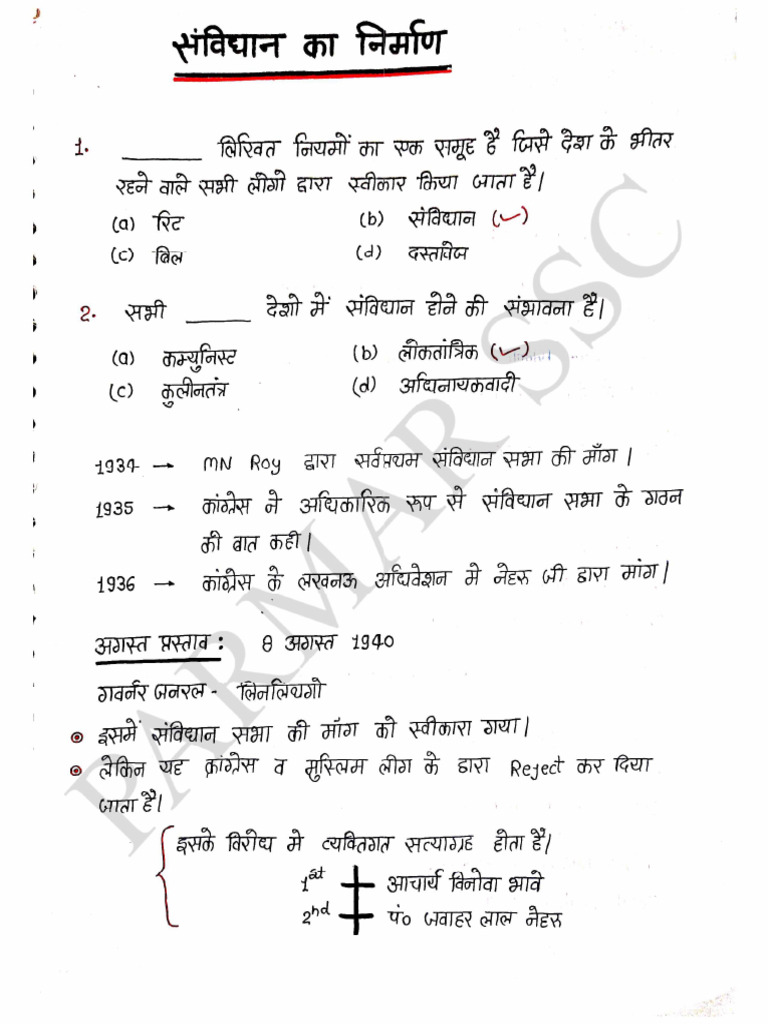 संविधान का निर्माण
1. ______ लिखित नियमों का एक समूह है जिसे देश के भीतर
रहने वाले सभी लोगो द्वारा स्वीकार किया जाता है।
(a) रिट (b) संविधान (✓)
(c) बिल (d) दस्तावेज
2. सभी ______ देशो में संविधान होने की संभावना है।
(a) कम्युनिस्ट (b) लोकतांत्रिक (✓)
(c) कुलीनतंत्र (d) अधिनायकवादी
1934 → MN Roy द्वारा सर्वप्रथम संविधान सभा की माँग।
1935 → कांग्रेस ने अधिकारिक रूप से संविधान सभा के गठन
की बात कही।
1936 → कांग्रेस के लखनऊ अधिवेशन मे नेहरू जी द्वारा मांग।
अगस्त प्रस्ताव : 8 अगस्त 1940
गवर्नर जनरल - लिनलिथगो
इसमें संविधान सभा की माँग को स्वीकारा गया।
लेकिन यह कांग्रेस व मुस्लिम लीग के द्वारा Reject कर दिया
जाता है।
इसके विरोध मे व्यक्तिगत सत्याग्रह होता है।
1st आचार्य विनोवा भावे
2nd पं० जवाहर लाल नेहरू
PARMAR SSC